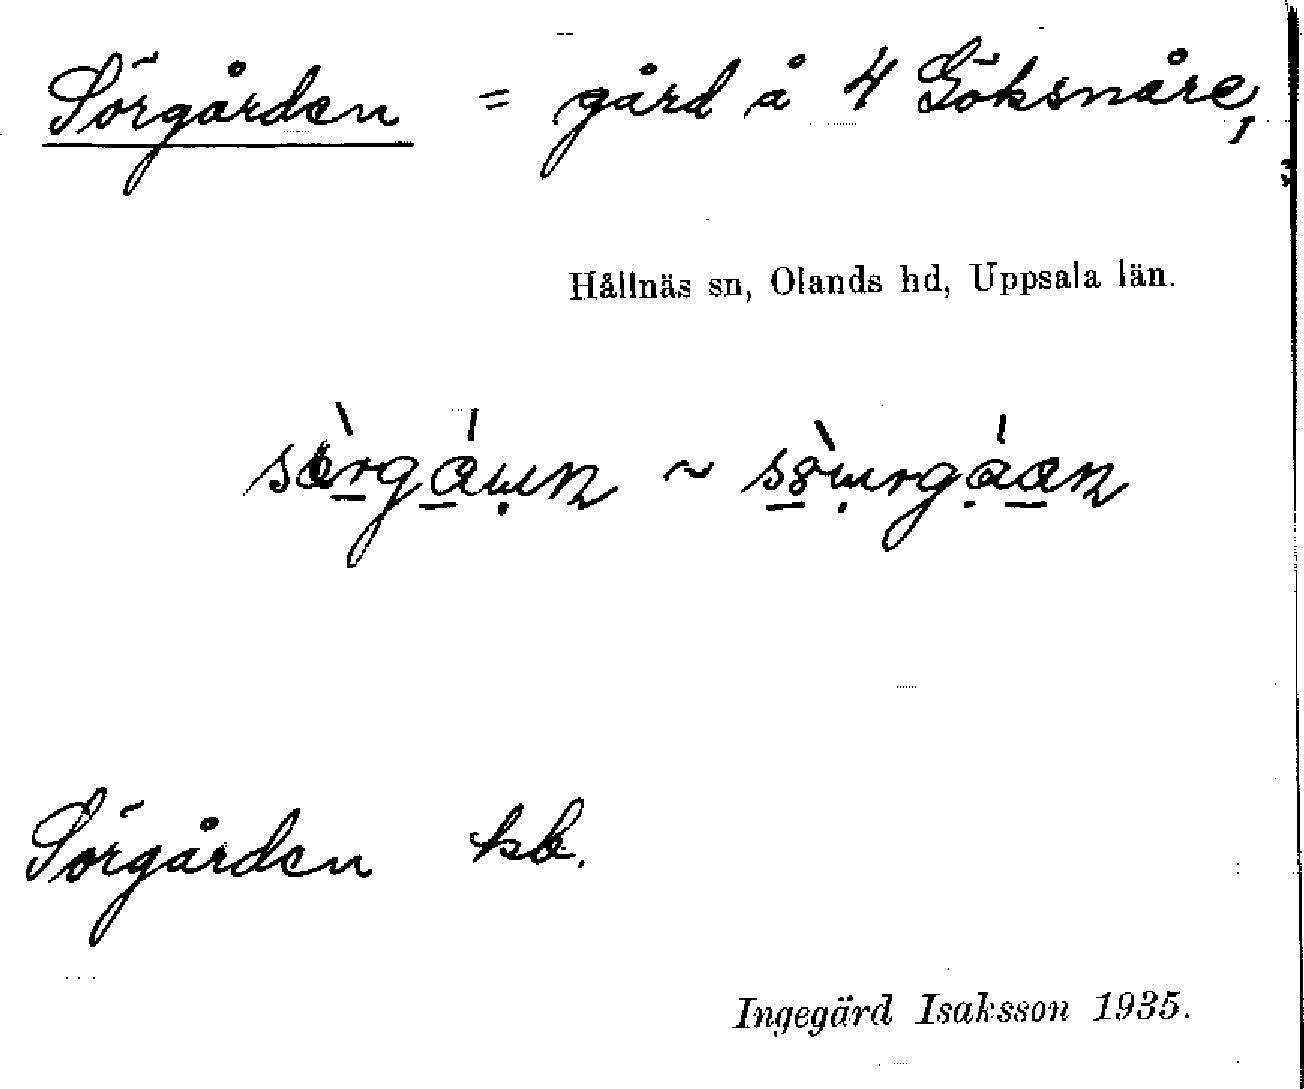 Sörgården = gård å 4 Göksnåre,
Hållnäs sn, Olands hd, Uppsala län.
Sörgården kb.
Ingegärd Isaksson 1935.